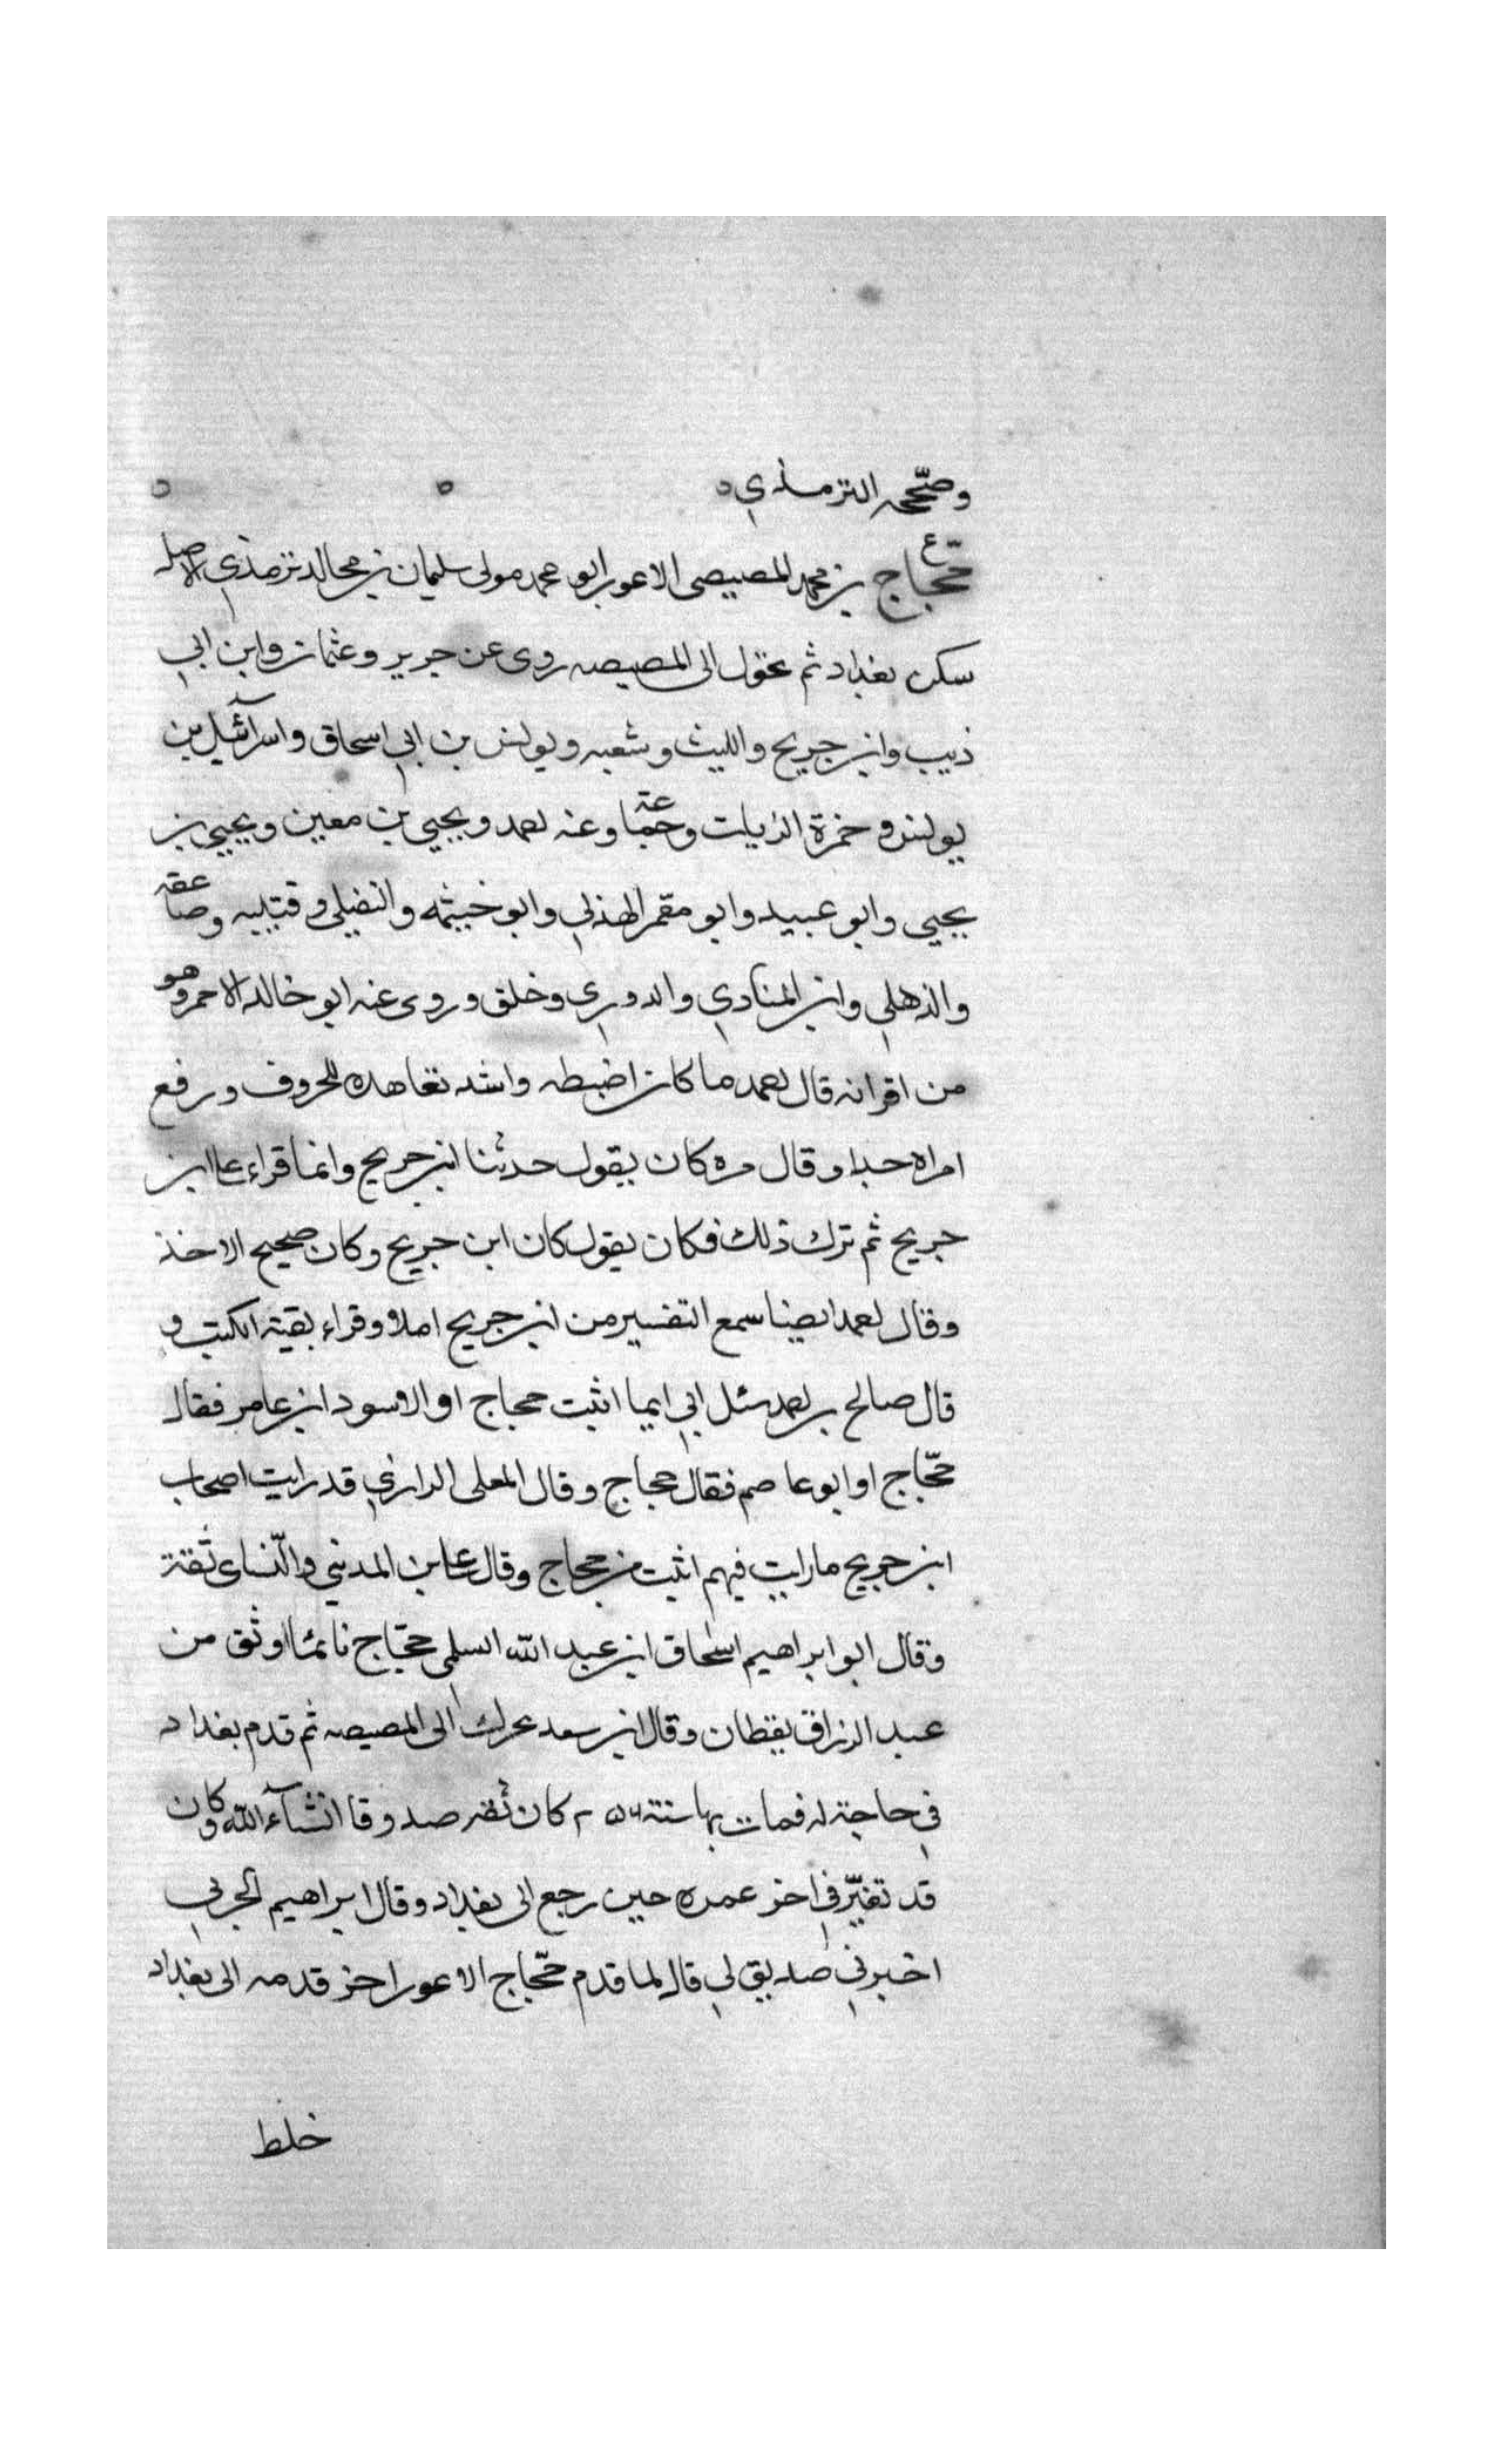 وصّححه الترمذي ٥ ٥ ٥
ع
حّجاج بن محمد المصيصى الاعور ابو محمد مولى سليمان بن مجالد ترمذي الاصل
سكن بغداد ثم تحول الى المصيصه روى عن جرير وعثمان وابن ابي
ذيب وابن جريج والليث وشعبه ويونس بن ابي اسحاق واسرآئيل بن
يونس وحمزة الزيات وجماعة وعنه احمد ويحيي بن معين ويحيي بن
يحيي وابو عبيد وابو معمر الهذلي وابو خيثمه والنفيلى وقتيبه وصاعقه
والذهلي وابن المنادي والدوري وخلق وروى عنه ابو خالد الاحمر وهو
من اقرانه قال احمد ما كان اضبطه واشد تعاهده للحروف ورفع
امراه جدا وقال مره كان يقول حدثنا ابن جريج وانما قراء على ابن
جريج ثم ترك ذلك فكان يقول كان ابن جريج وكان صحيح الاخذ
وقال احمد ايضا سمع التفسير من ابن جريج املا وقراء بقية الكتب و
قال صالح بن احمد سئل ابي ايما اثبت حجاج او الاسود ابن عامر فقال
حّجاج او ابو عاصم فقال حجاج وقال المعلى الرازي قد رايت اصحاب
ابن جريج ما رايت فيهم اثبت من حجاج وقال على بن المديني والنّساى ثقة
وقال ابو ابراهيم اسحاق ابن عبد الله السلمى حجّاج نائما اوثق من
عبد الرزاق يقظان وقال ابن سعد تحرك الى المصيصه ثم قدم بغداد
في حاجة له فمات بها سنة كان ثقه صدوقا انشآء الله وكان
قد تغيّر في اخر عمره حين رجع الى بغداد وقال ابراهيم الحربي
اخبرني صديق لي قال لما قدم حّجاج الاعور اخر قدمه الى بغداد
خلط